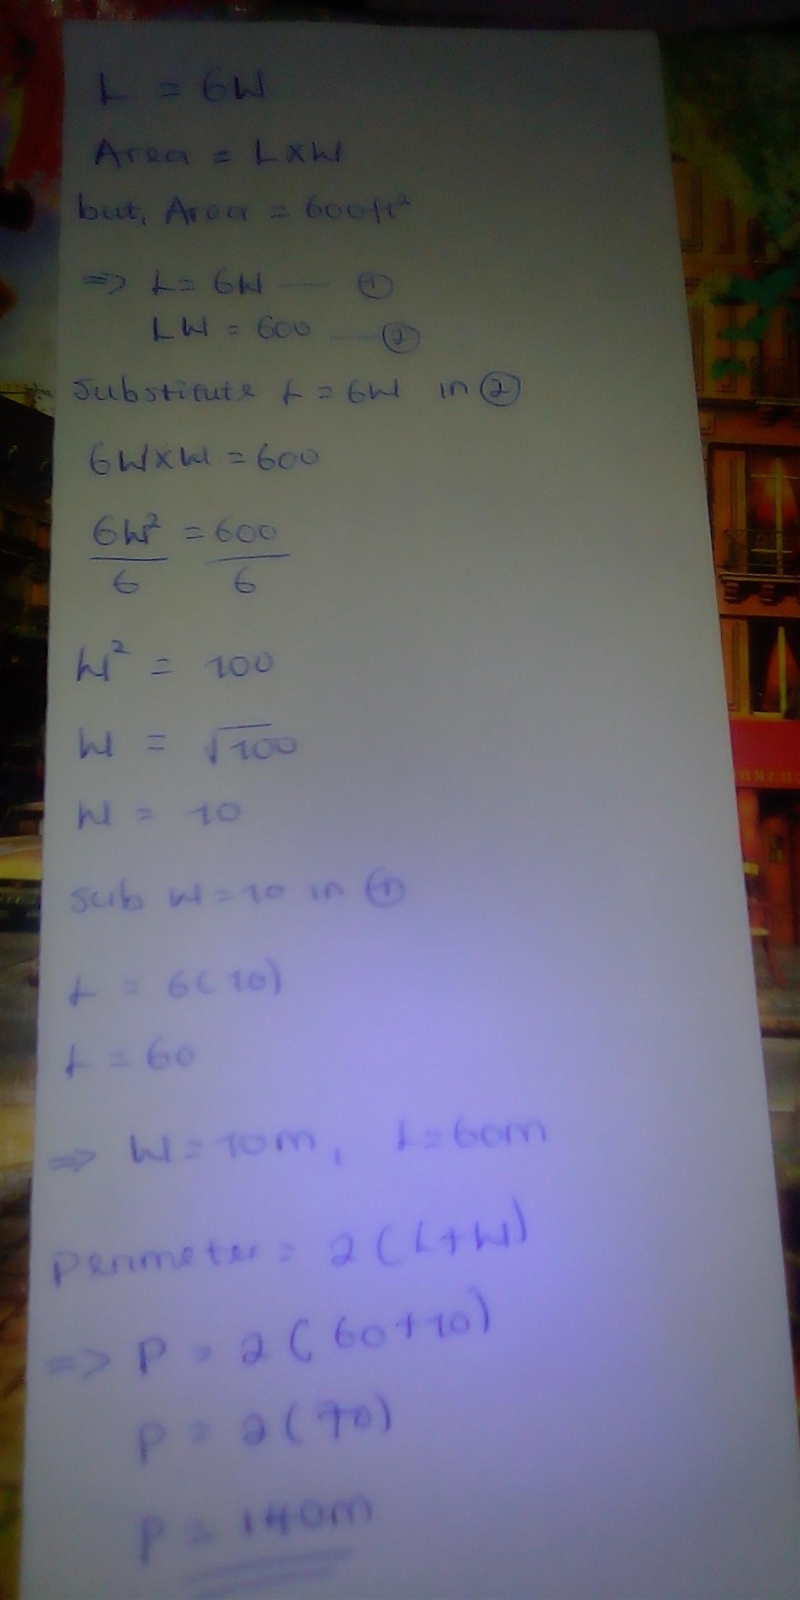 L = 6W
Area = L×W
but, Area = 600ft²
=> L = 6W ---- ①
LW = 600 ---- ②
Substitute L = 6W in ②
6W×W = 600
6W²/6 = 600/6
W² = 100
W = √100
W = 10
Sub W=10 in ①
L = 6(10)
L = 60
=> W = 10m, L = 60m
Perimeter = 2(L+W)
=> P = 2(60+10)
P = 2(70)
P = 140m